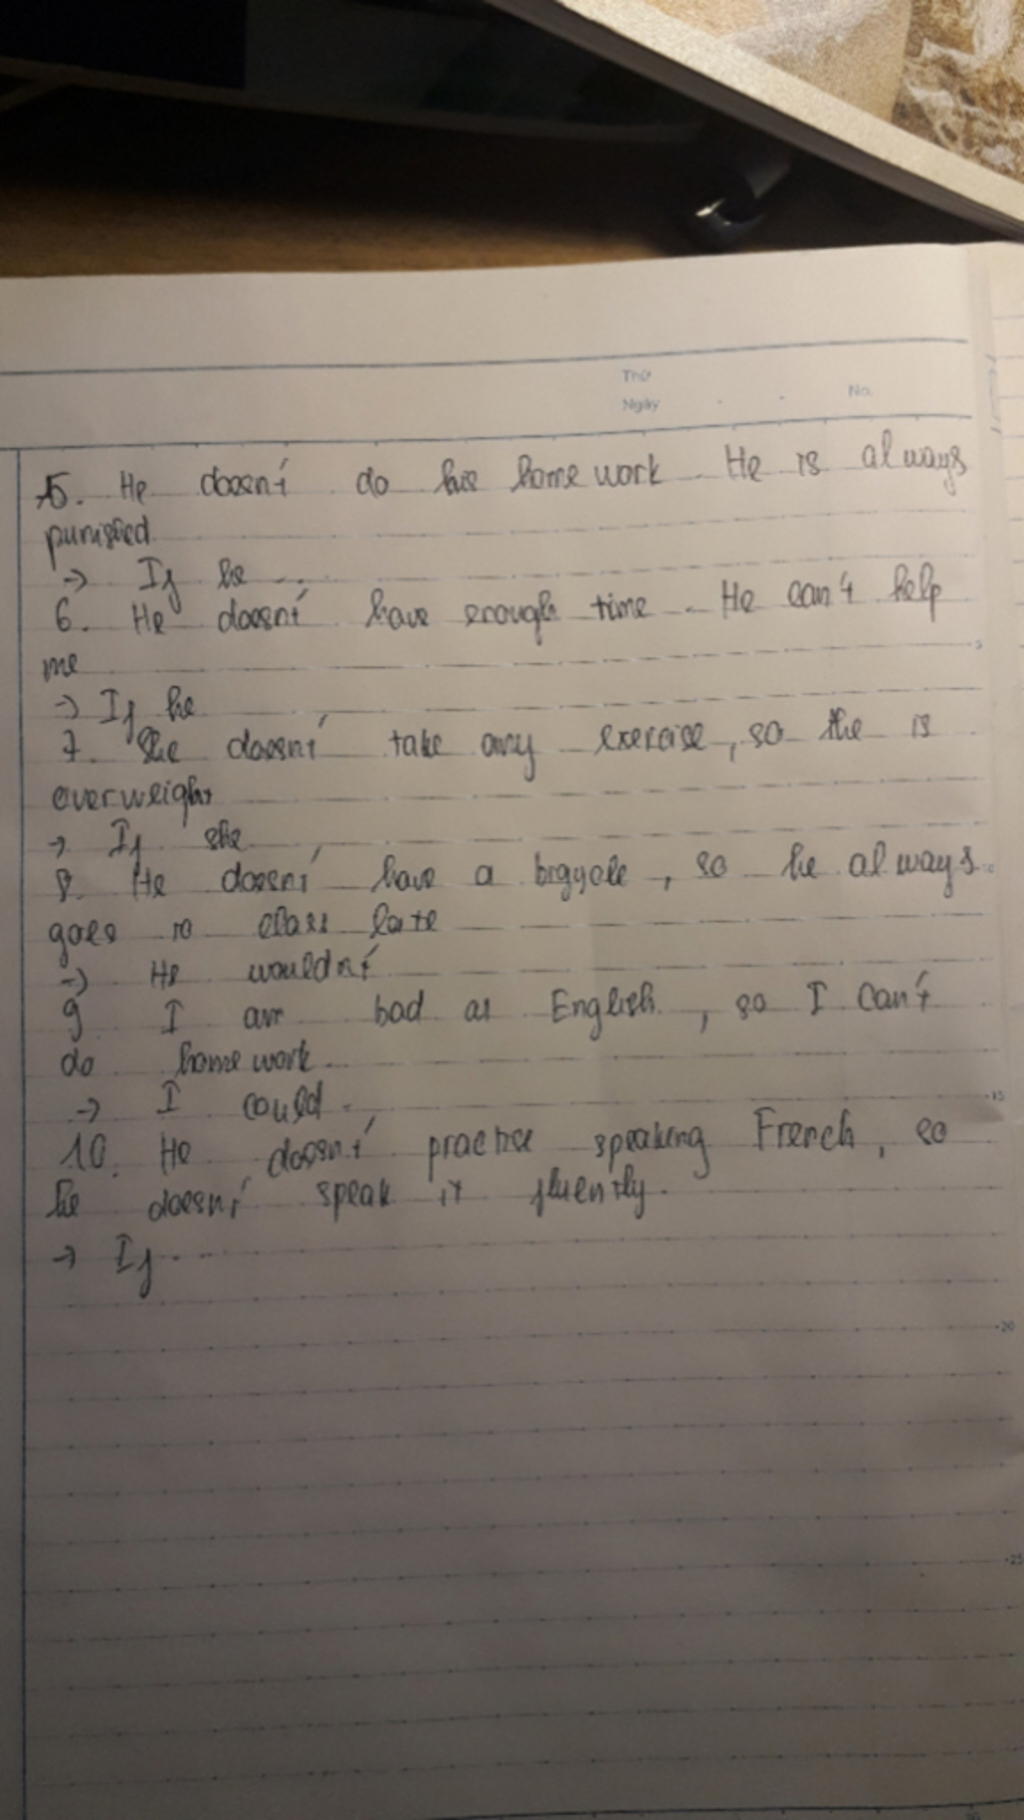 Thứ
Ngày
No.
5. He doesn't do his home work He is always
punished.
→ If he ...
6. He doesn't have enough time. He can't help
me
→ If he
7. She doesn't take any exercise, so the is
overweight
→ If she
8. He doesn't have a bigycle, so he always
goes to class late
→ He wouldn't
9 I am bad at English, so I can't
do home work.
→ I could.
10. He doesn't practise speaking French, so
he doesn't speak it fluently.
→ If...
5
10
15
20
25